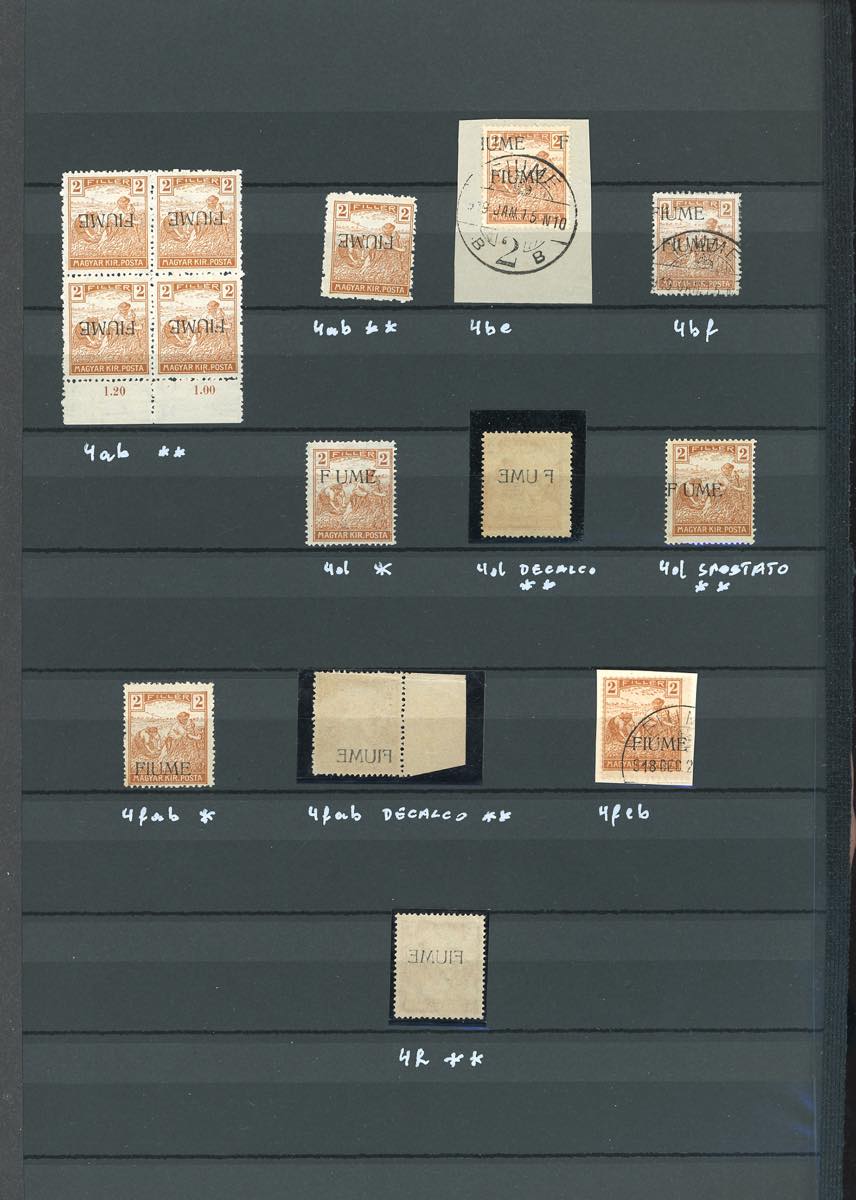 2 FILLER 2 2 FILLER 2
FIUME FIUME
MAGYAR KIR. POSTA MAGYAR KIR. POSTA
2 FILLER 2 2 FILLER 2
FIUME FIUME
MAGYAR KIR. POSTA MAGYAR KIR. POSTA
1.20 1.00
4ab **
2 FILLER 2
FIUME
MAGYAR KIR. POSTA
4ab **
IUME F
2
FIUME
FIUME
919 JAN 15 N10
B 2 B
4be
2 2
FIUME
FIUME
4bf
2 FILLER 2
F UME
MAGYAR KIR. POSTA
4d *
F UME
4d DECALCO
**
2 FILLER 2
F UME
MAGYAR KIR. POSTA
4d SPOSTATO
**
2 FILLER 2
FIUME
MAGYAR KIR. POSTA
4fab *
FIUME
4fab DECALCO **
2 FILLER 2
FIUME
918 DEC 2
4feb
FIUME
4R **